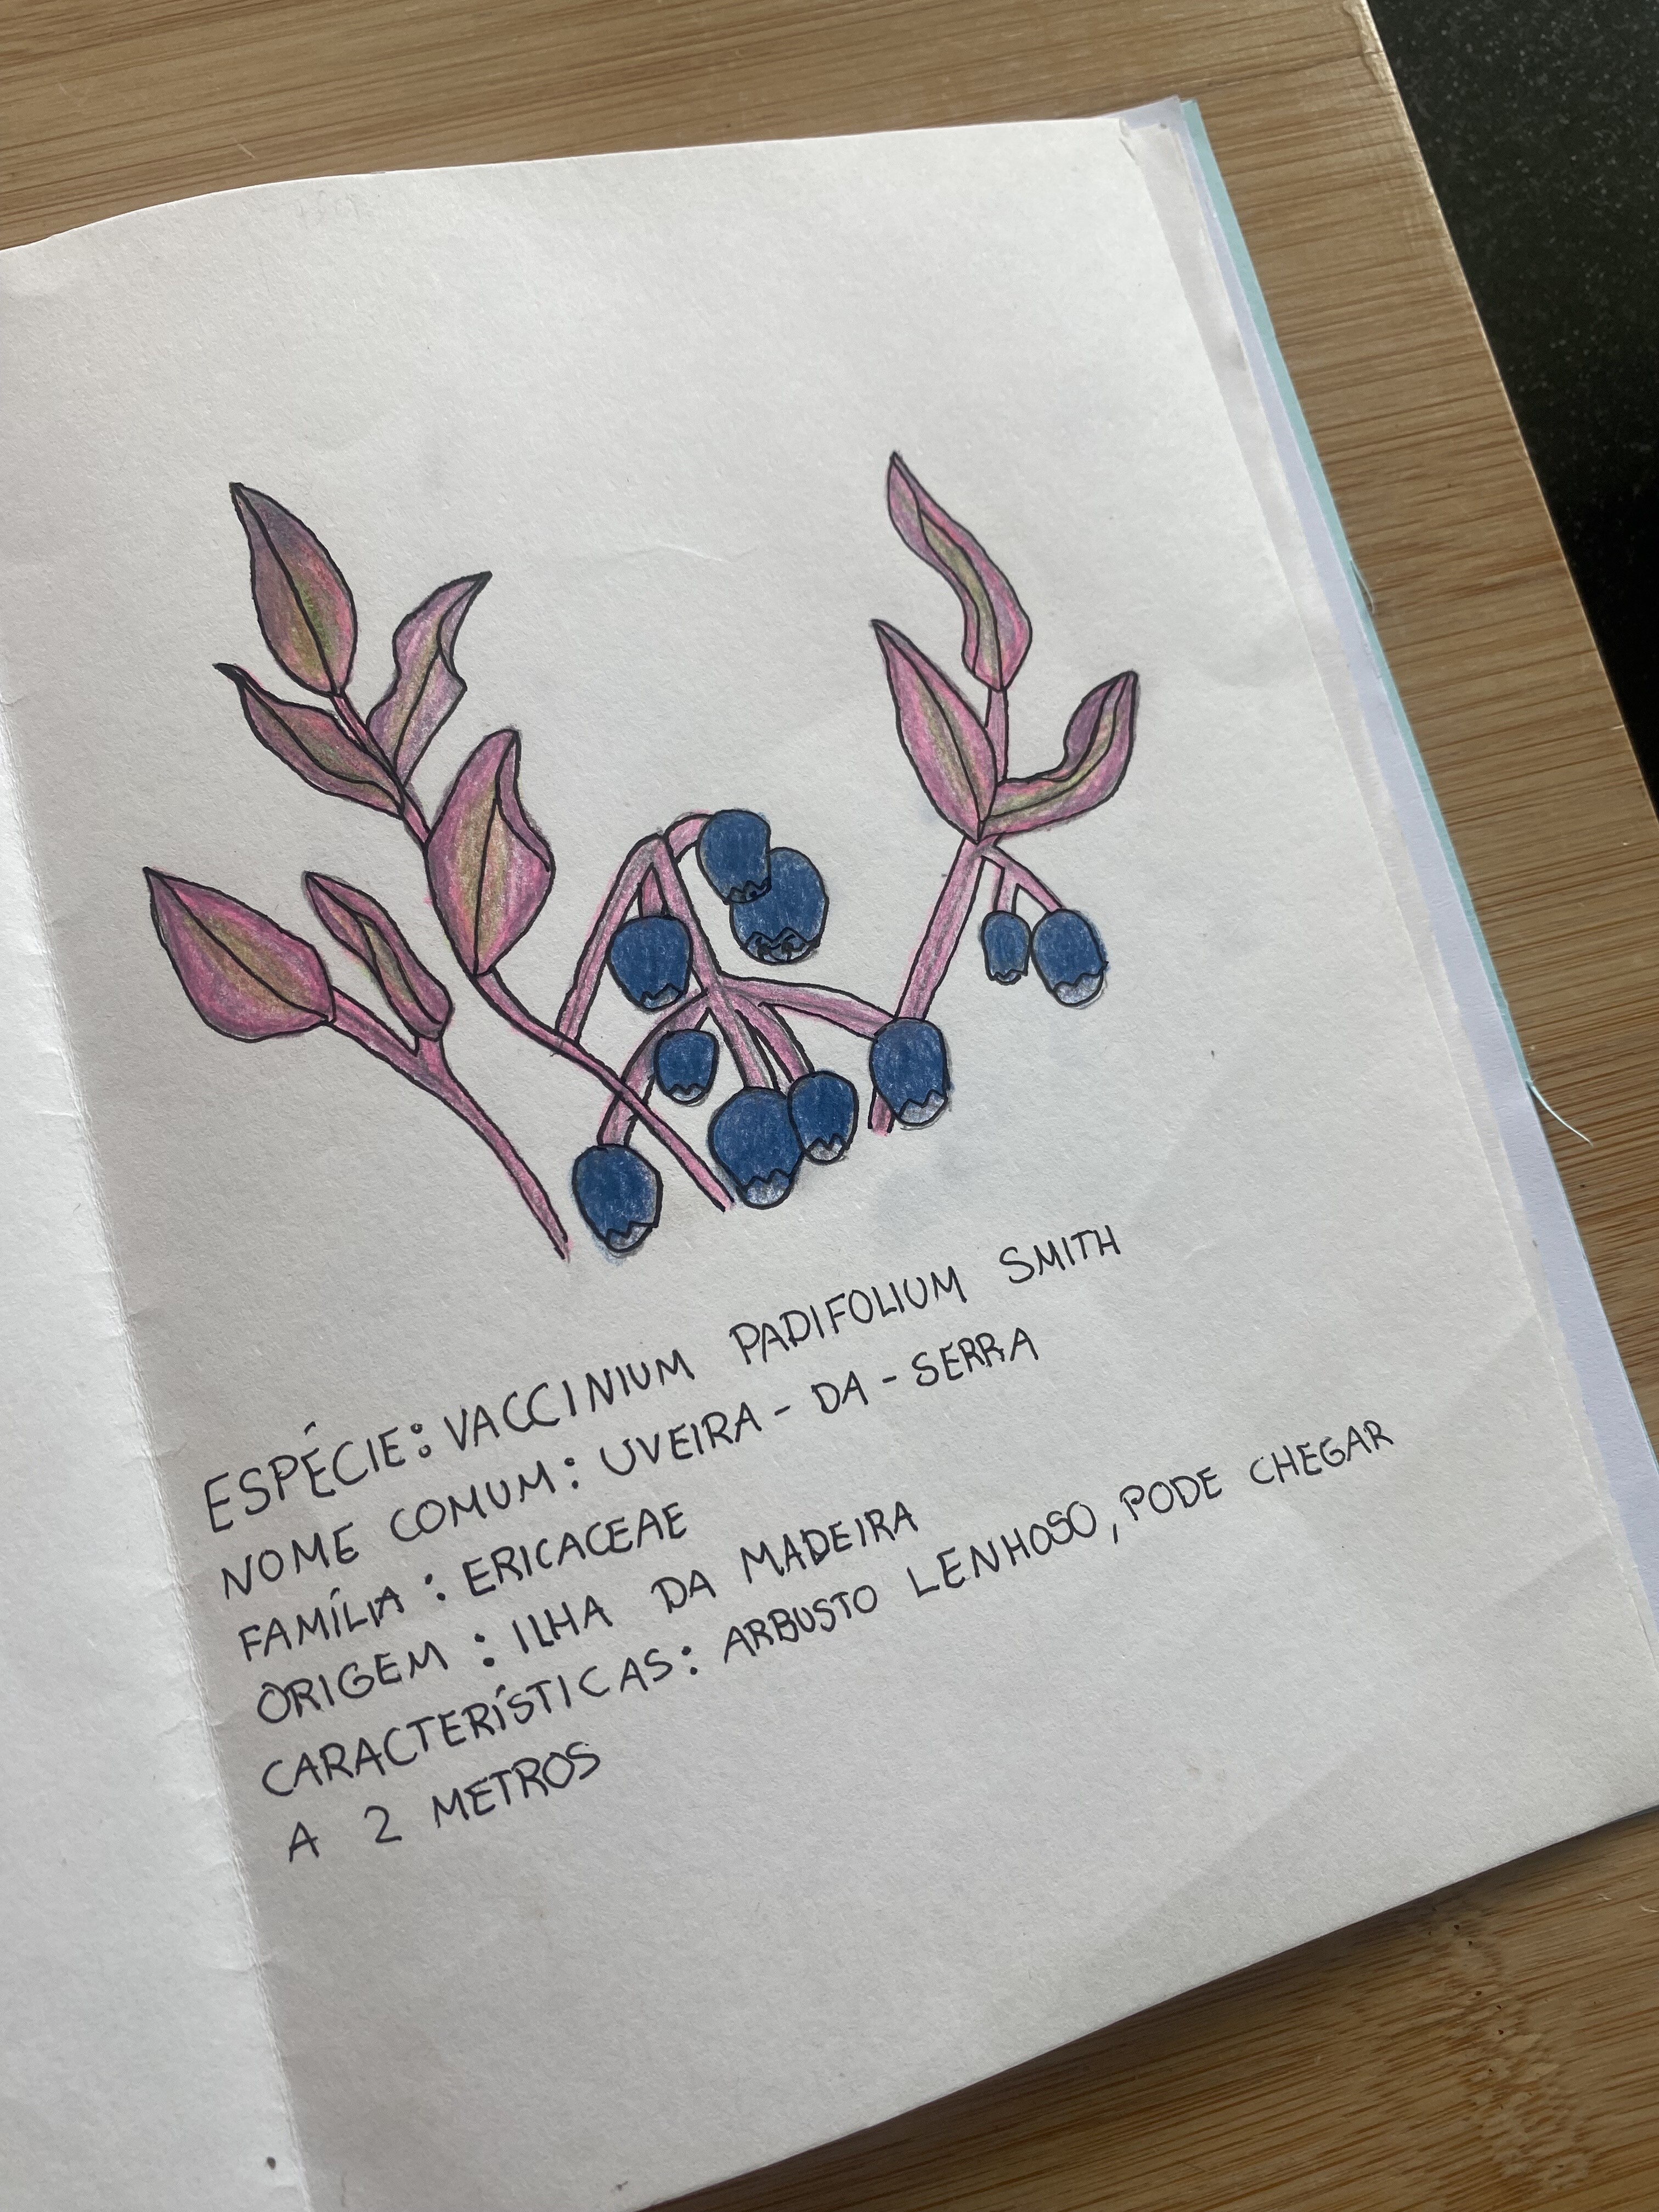 ESPÉCIE: VACCINIUM PADIFOLIUM SMITH
NOME COMUM: UVEIRA-DA-SERRA
FAMÍLIA: ERICACEAE
ORIGEM: ILHA DA MADEIRA
CARACTERÍSTICAS: ARBUSTO LENHOSO, PODE CHEGAR
A 2 METROS